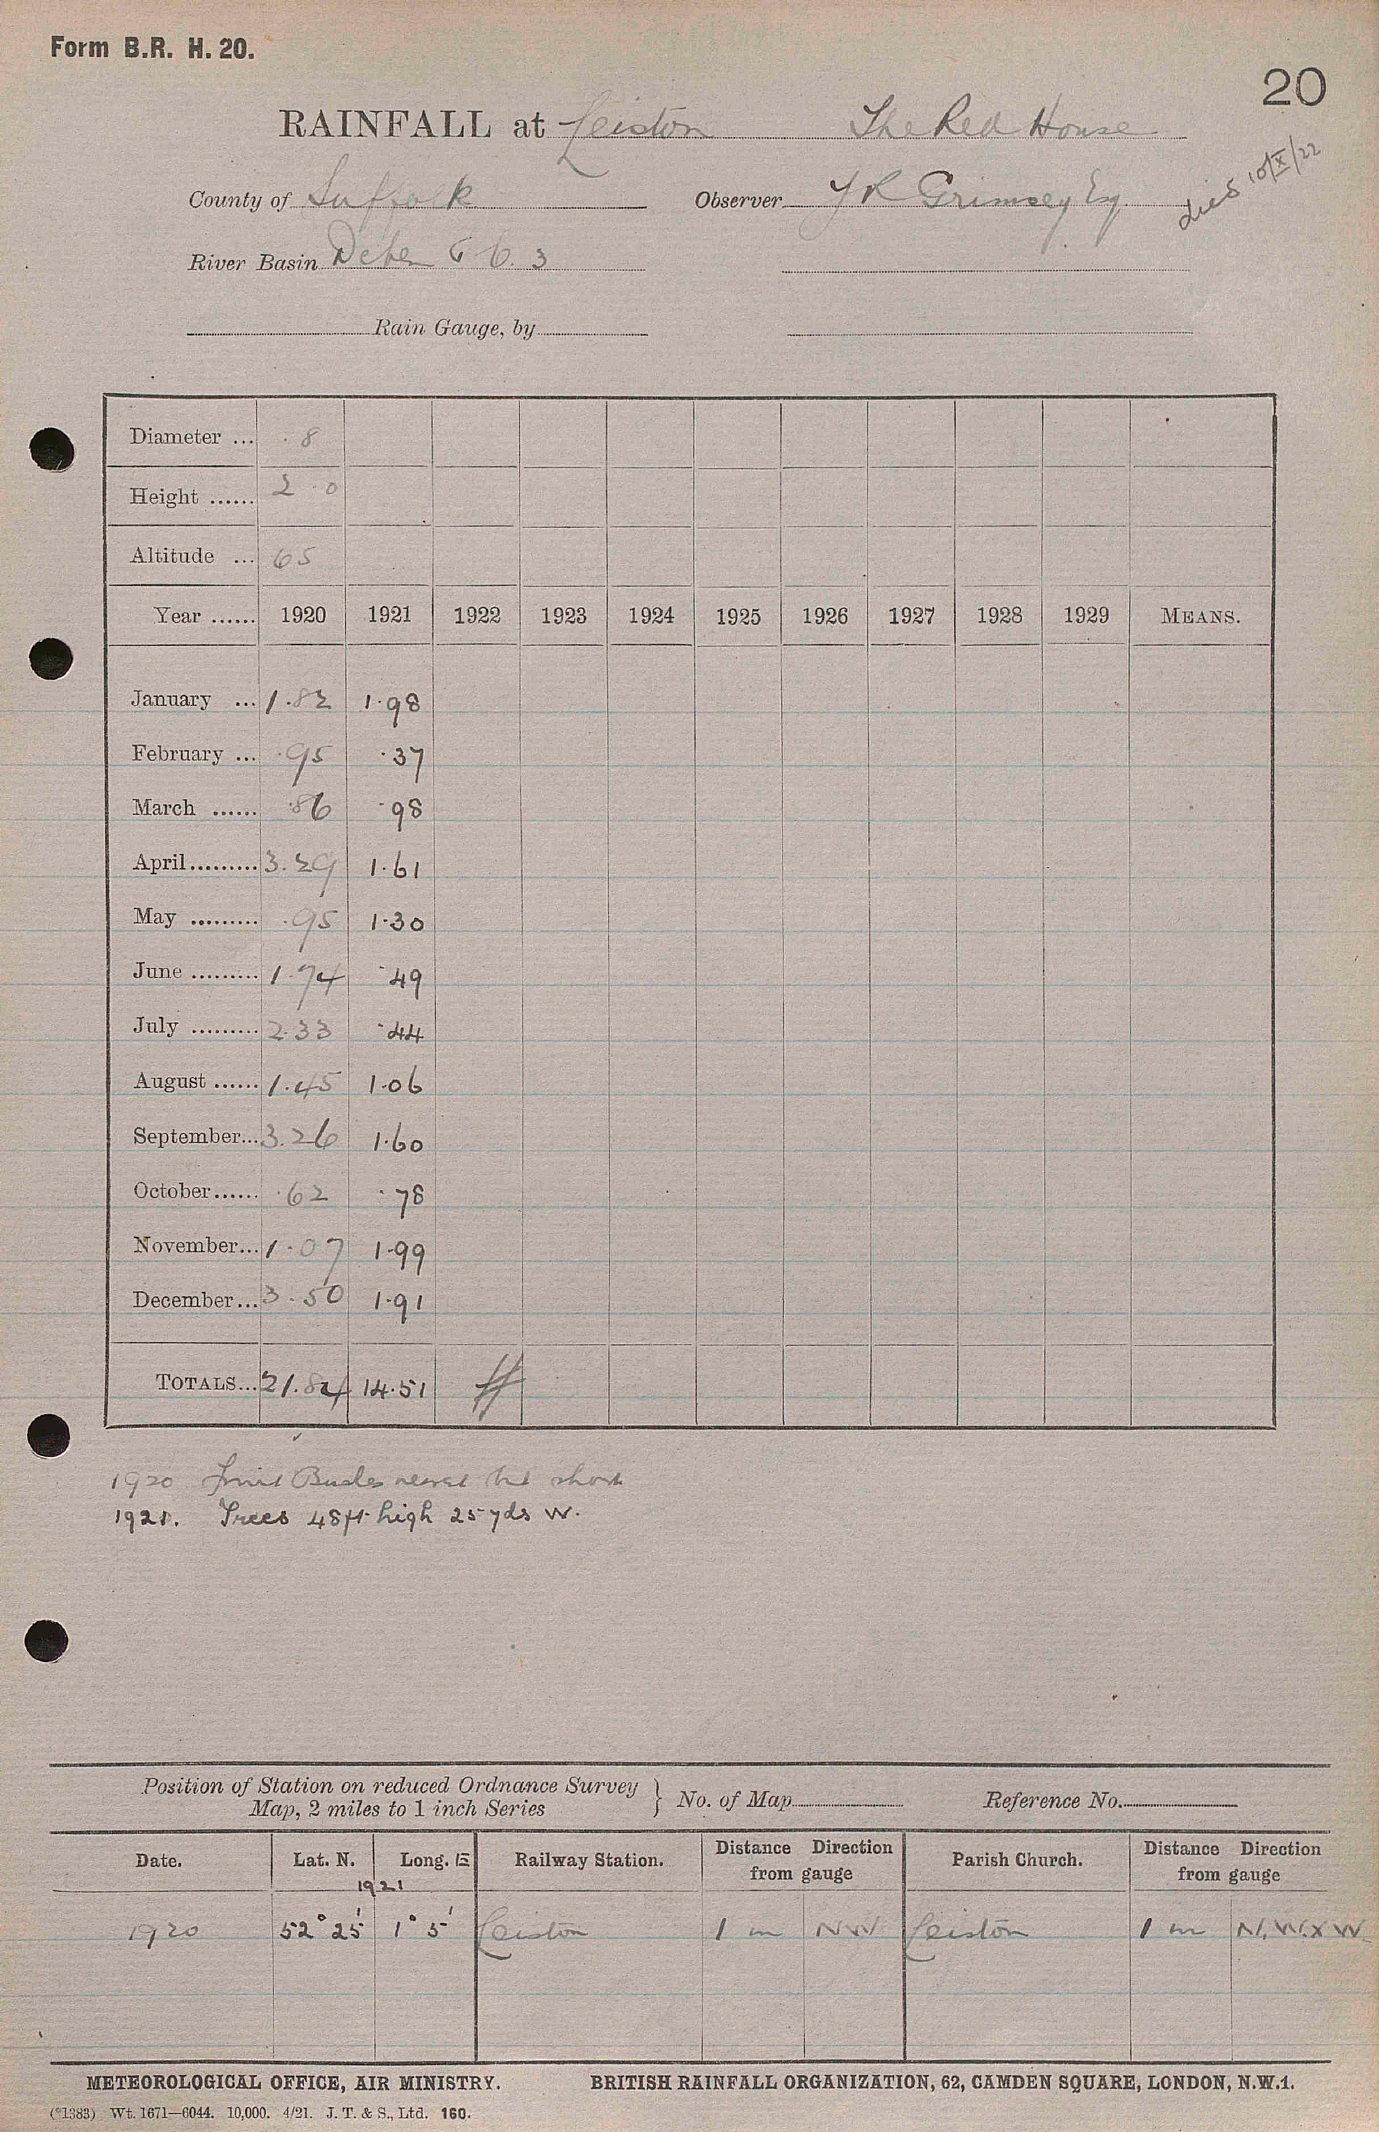 Form B.R. H. 20.
20
RAINFALL at Leiston The Red House
died 10/X/22
County of Suffolk Observer J R Grimsey Esq
River Basin Deben 3
Rain Gauge, by
Diameter ... 8
Height ...... 2.0
Altitude ... 65
Year ...... 1920 1921 1922 1923 1924 1925 1926 1927 1928 1929 MEANS.
January ... 1.82 1.98
February ... .95 .37
March ...... .86 .98
April......... 3.29 1.61
May ......... .95 1.30
June ......... 1.74 .49
July ......... 2.33 .44
August ...... 1.45 1.06
September... 3.26 1.60
October...... .62 .78
November... 1.07 1.99
December... 3.50 1.91
TOTALS... 21.84 14.51
1920 Fruit Bushes but short
1921. Trees 48ft high 25 yds W.
Position of Station on reduced Ordnance Survey
Map, 2 miles to 1 inch Series } No. of Map Reference No.
Date. Lat. N. Long. E Railway Station. Distance Direction from gauge Parish Church. Distance Direction from gauge
1921
1920 52° 25' 1° 5' Leiston 1 m NW Leiston 1 m N.W.x W.
METEOROLOGICAL OFFICE, AIR MINISTRY. BRITISH RAINFALL ORGANIZATION, 62, CAMDEN SQUARE, LONDON, N.W.1.
(*1383) Wt. 1671—6044. 10,000. 4/21. J. T. & S., Ltd. 160.